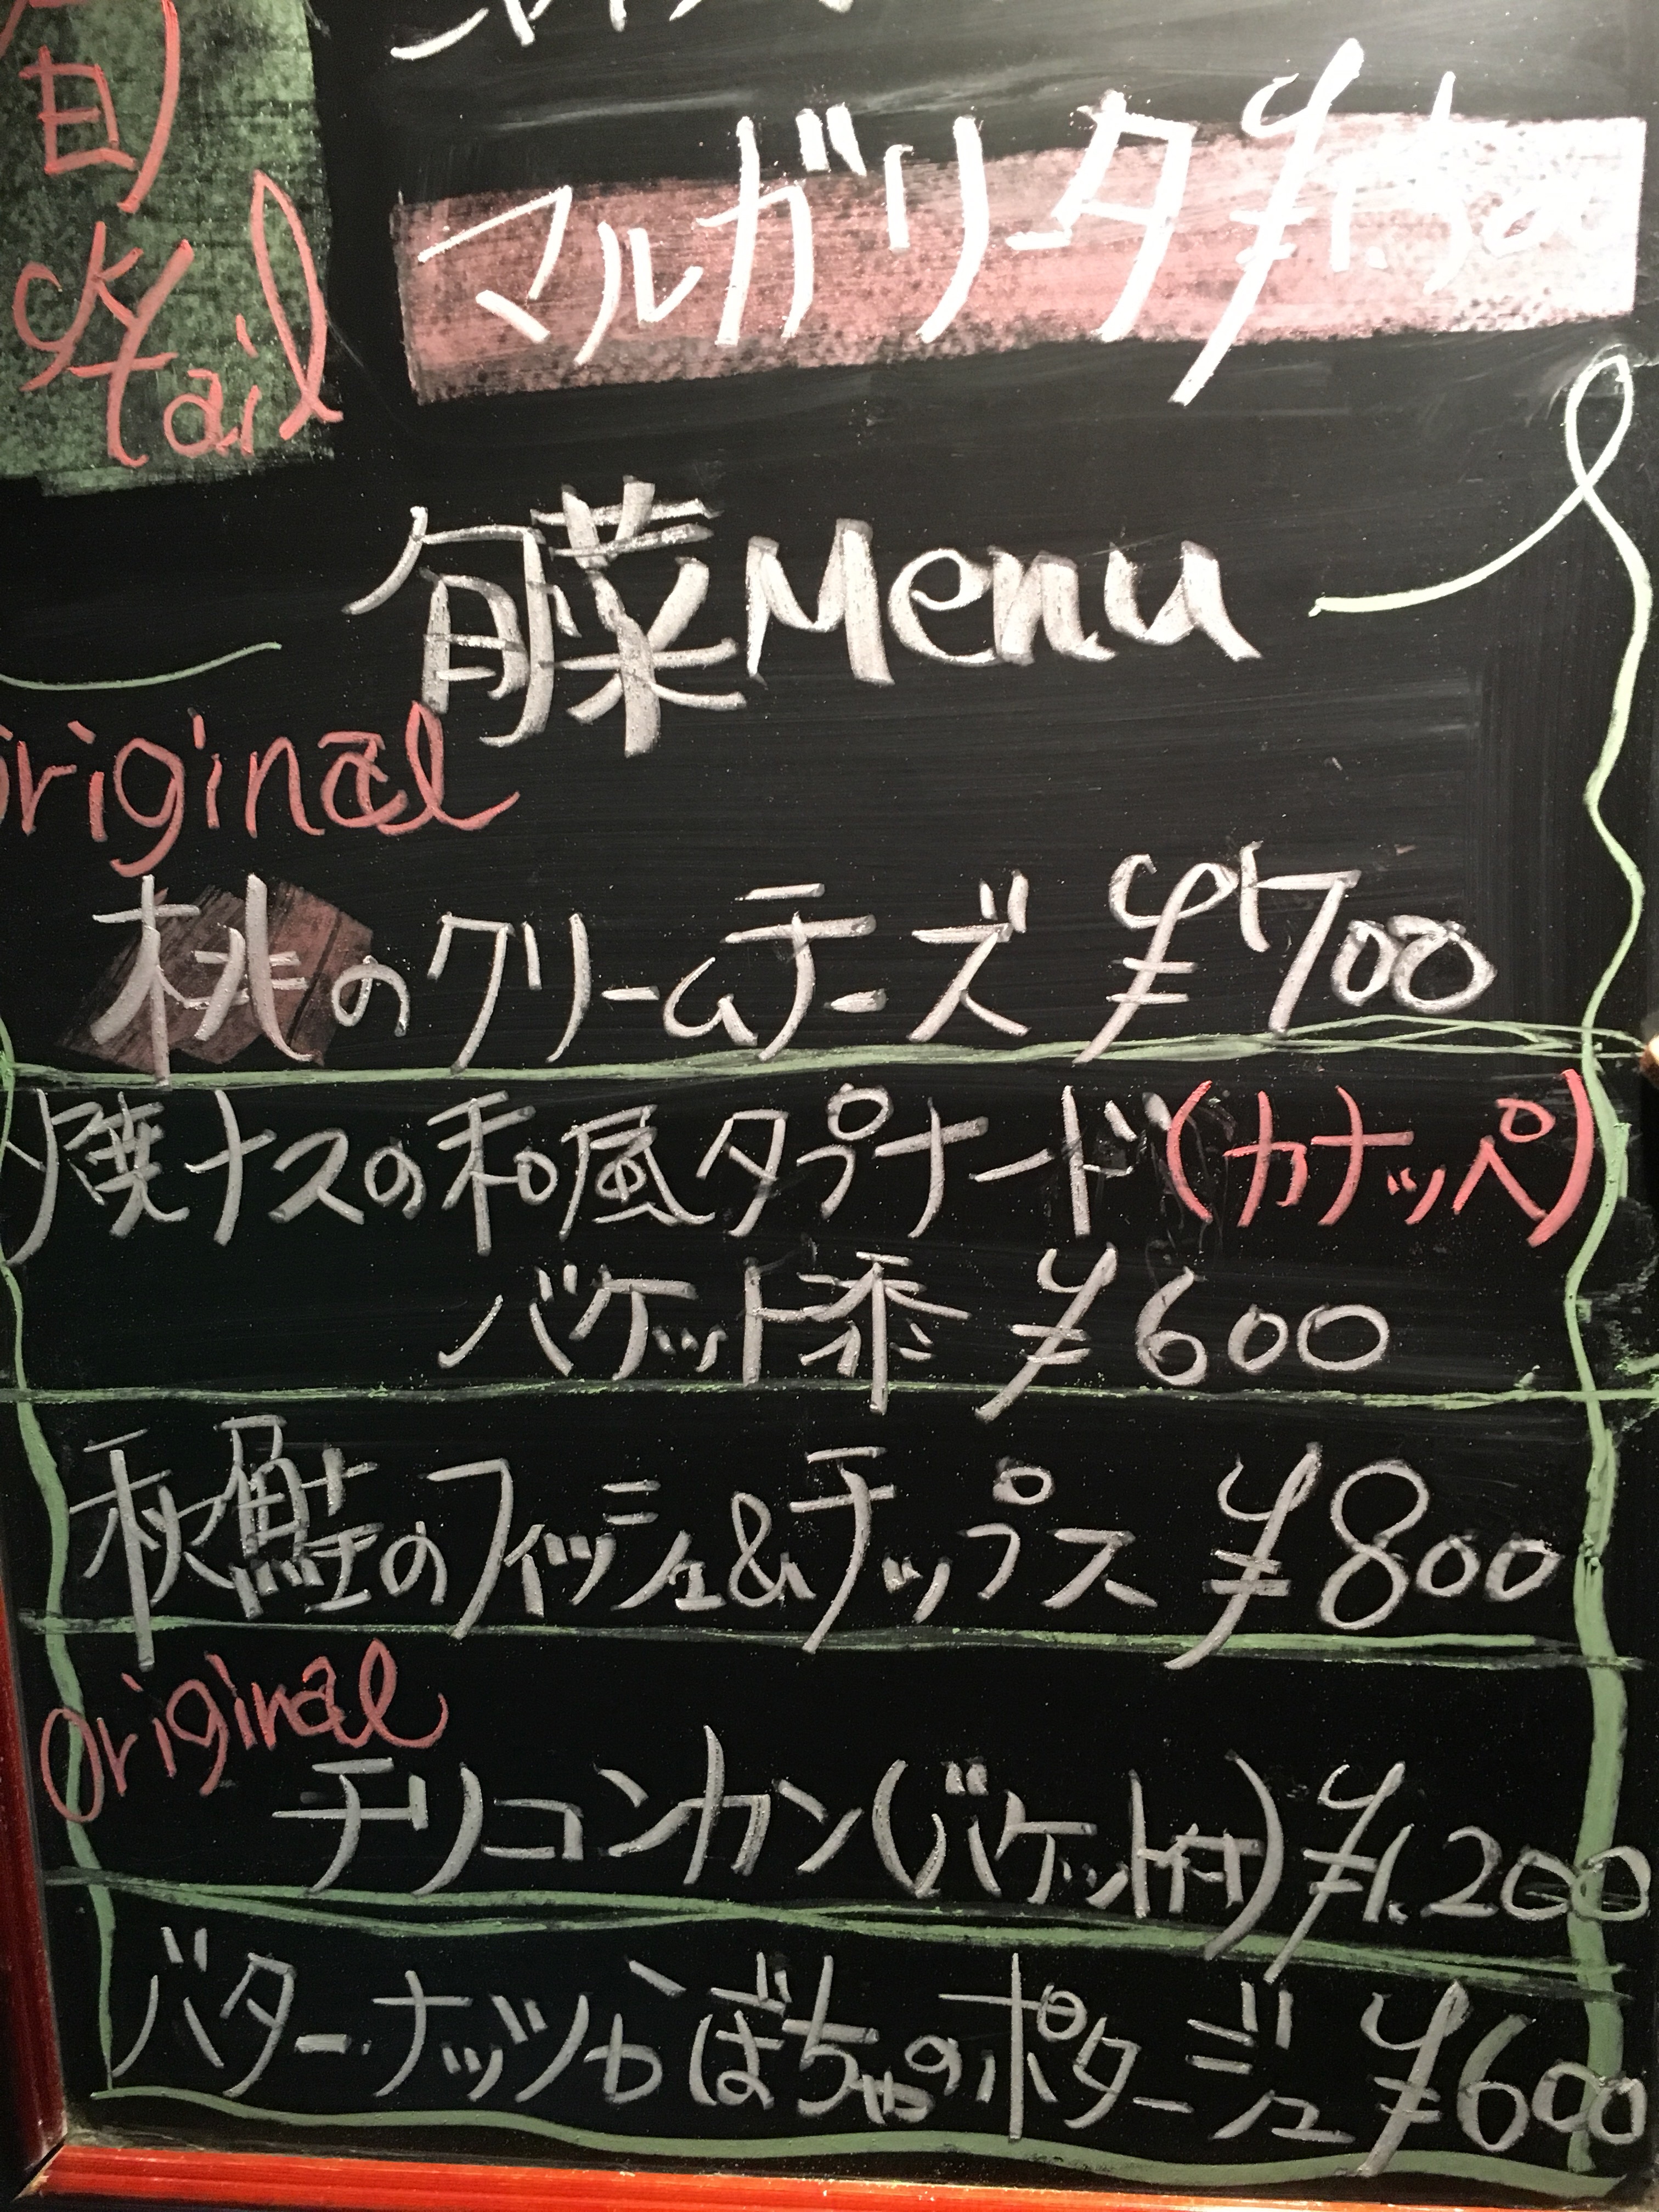 旬
cktail
マルガリータ
旬菜Menu
original
桃のクリームチーズ ¥700
焼ナスの和風タプナード(カナッペ)
バケット添 ¥600
秋鮭のフィッシュ&チップス ¥800
original
チリコンカン(バケット付) ¥1.200
バターナッツかぼちゃのポタージュ ¥600